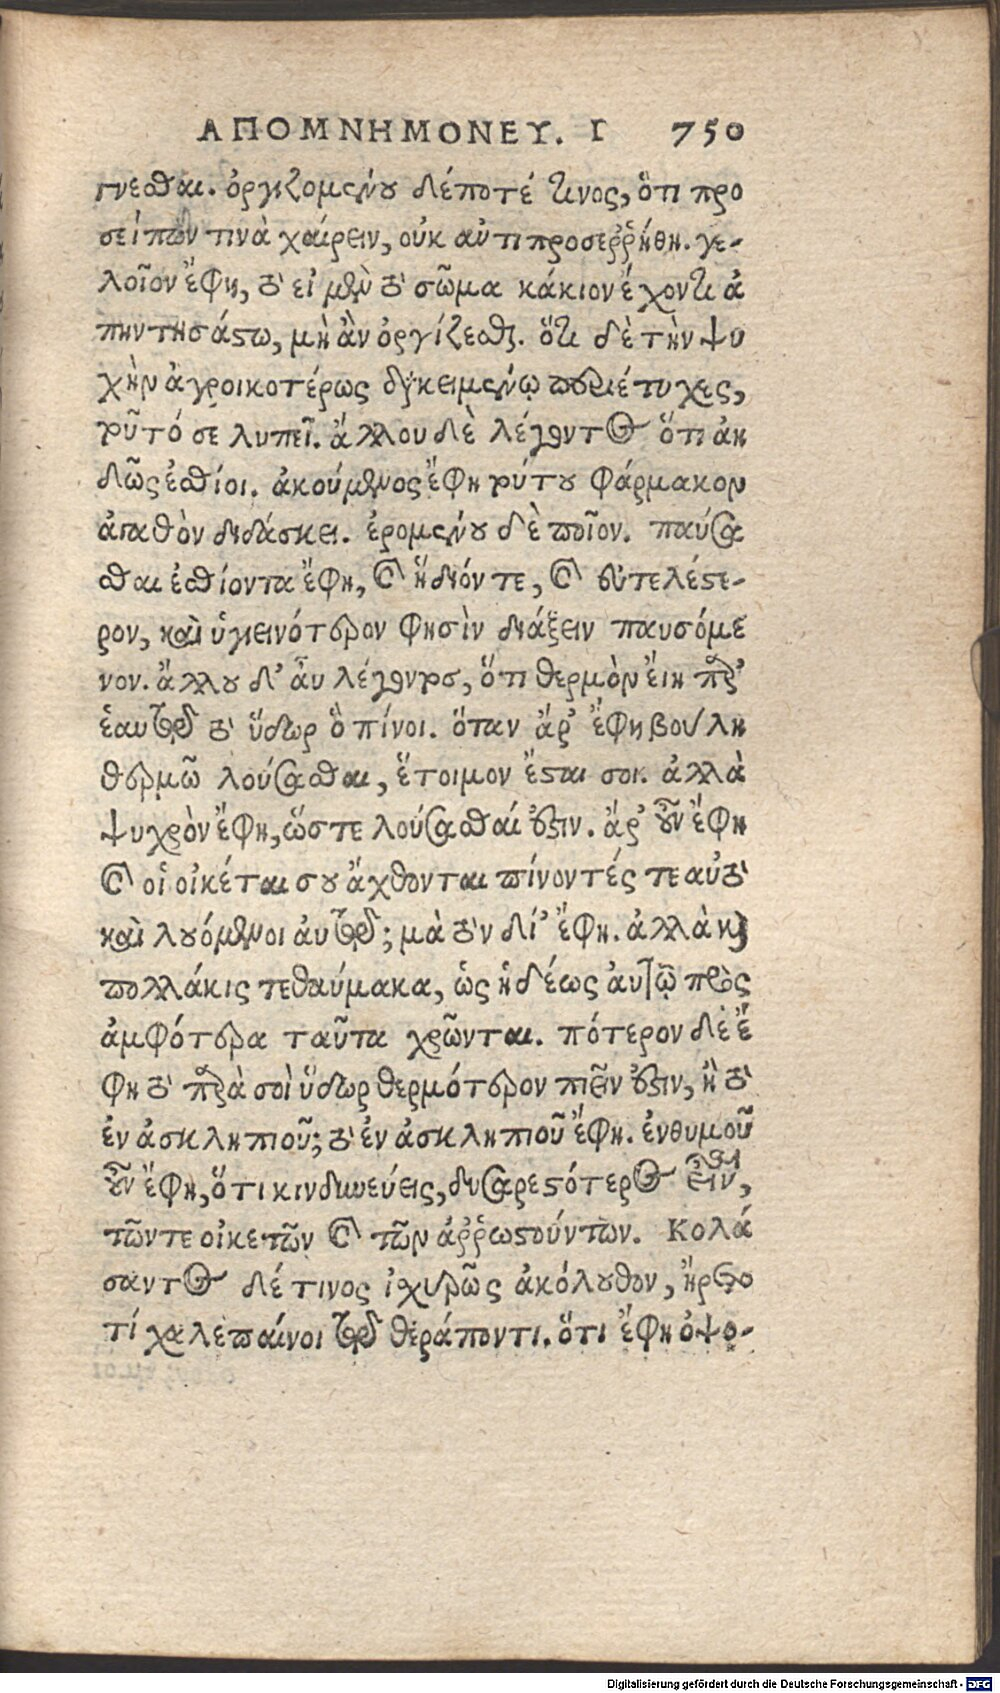 ΑΠΟΜΝΗΜΟΝΕΥ. Γ 750
γνεσθαι. ὀργιζομένου δέ ποτέ τινος, ὅτι προ
σειπών τινὰ χαίρειν, οὐκ ἀντιπροσερρήθη. γε-
λοῖον ἔφη, τὸ εἰ μὲν τὸ σῶμα κάκιον ἔχοντι ἀ
πηντησάς τω, μὴ ἂν ὀργίζεσθαι. ὅτι δὲ τὴν ψυ
χὴν ἀγροικοτέρως διακειμένῳ περιέτυχες,
τοῦτό σε λυπεῖ. ἄλλου δὲ λέγοντος ὅτι ἀη
δῶς ἐσθίοι. ἀκούμενος ἔφη τούτου φάρμακον
ἀγαθὸν διδάσκει. ἐρομένου δὲ ποῖον. παύσα
σθαι ἐσθίοντα ἔφη, καὶ ἥδιόν τε, καὶ εὐτελέστε-
ρον, καὶ ὑγιεινότερον φησὶν διάξειν παυσόμε
νον. ἄλλου δ' αὖ λέγοντος, ὅτι θερμὸν εἴη παρ'
ἑαυτῷ τὸ ὕδωρ ὃ πίνοι. ὅταν ἄρ' ἔφη βούλη
θερμῷ λούσασθαι, ἕτοιμον ἔσται σοι. ἀλλὰ
ψυχρὸν ἔφη, ὥστε λούσασθαί ἐστιν. ἆρ' οὖν ἔφη
καὶ οἱ οἰκέται σου ἄχθονται πίνοντές τε αὐτὸ
καὶ λουόμενοι αὐτῷ; μὰ τὸν δί' ἔφη. ἀλλὰ καὶ
πολλάκις τεθαύμακα, ὡς ἡδέως αὐτῷ πρὸς
ἀμφότερα ταῦτα χρῶνται. πότερον δὲ ἔ
φη τὸ παρὰ σοὶ ὕδωρ θερμότερον πιεῖν ἐστιν, ἢ τὸ
ἐν ἀσκληπιοῦ; τὸ ἐν ἀσκληπιοῦ ἔφη. ἐνθυμοῦ
οὖν ἔφη, ὅτι κινδυνεύεις, δυσαρεστότερος εἶναι,
τῶν τε οἰκετῶν καὶ τῶν ἀρρωστούντων. Κολά
σαντος δέ τινος ἰσχυρῶς ἀκόλουθον, ἤρετο
τί χαλεπαίνοι τῷ θεράποντι. ὅτι ἔφη ὀψο-
Digitalisierung gefördert durch die Deutsche Forschungsgemeinschaft - DFG